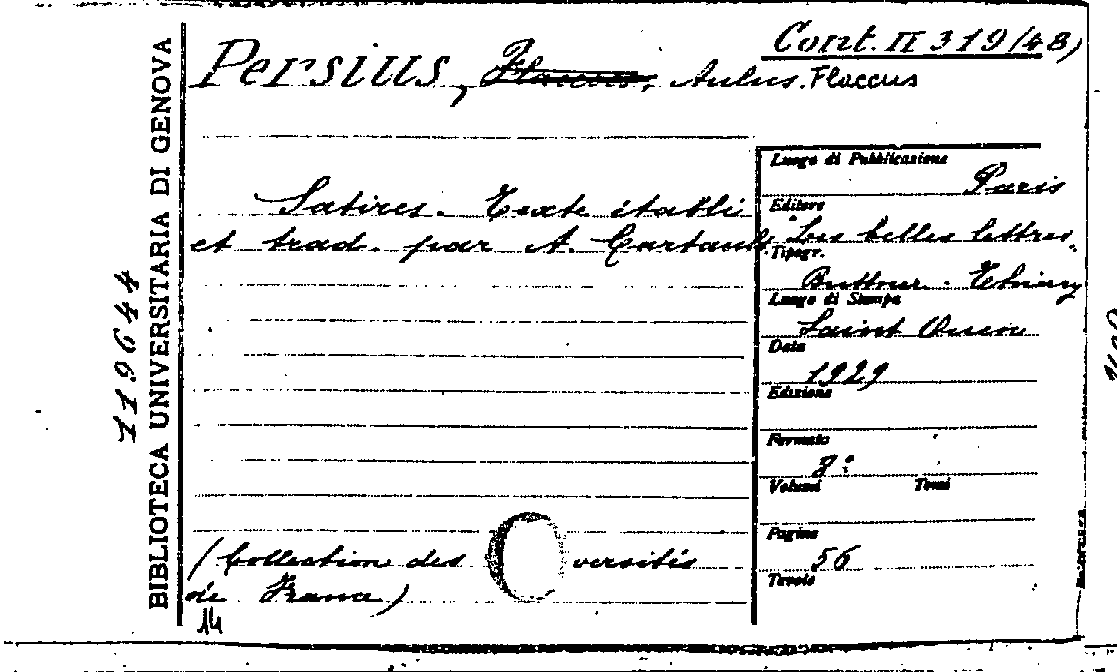 Cont. II 319 (48)
Persius, Aulus. Flaccus
Satires. Texte établi
et trad. par A. Cartault.
(Collection des versités
de France)
14
Luogo di Pubblicazione
Paris
Editore
"Les belles lettres.
Tipogr.
Luogo di Stampa
Saint Ouen
Data
1929
Edizione
Formato
8°
Volumi Tomi
Pagine
56
Tavole
BIBLIOTECA UNIVERSITARIA DI GENOVA
119644